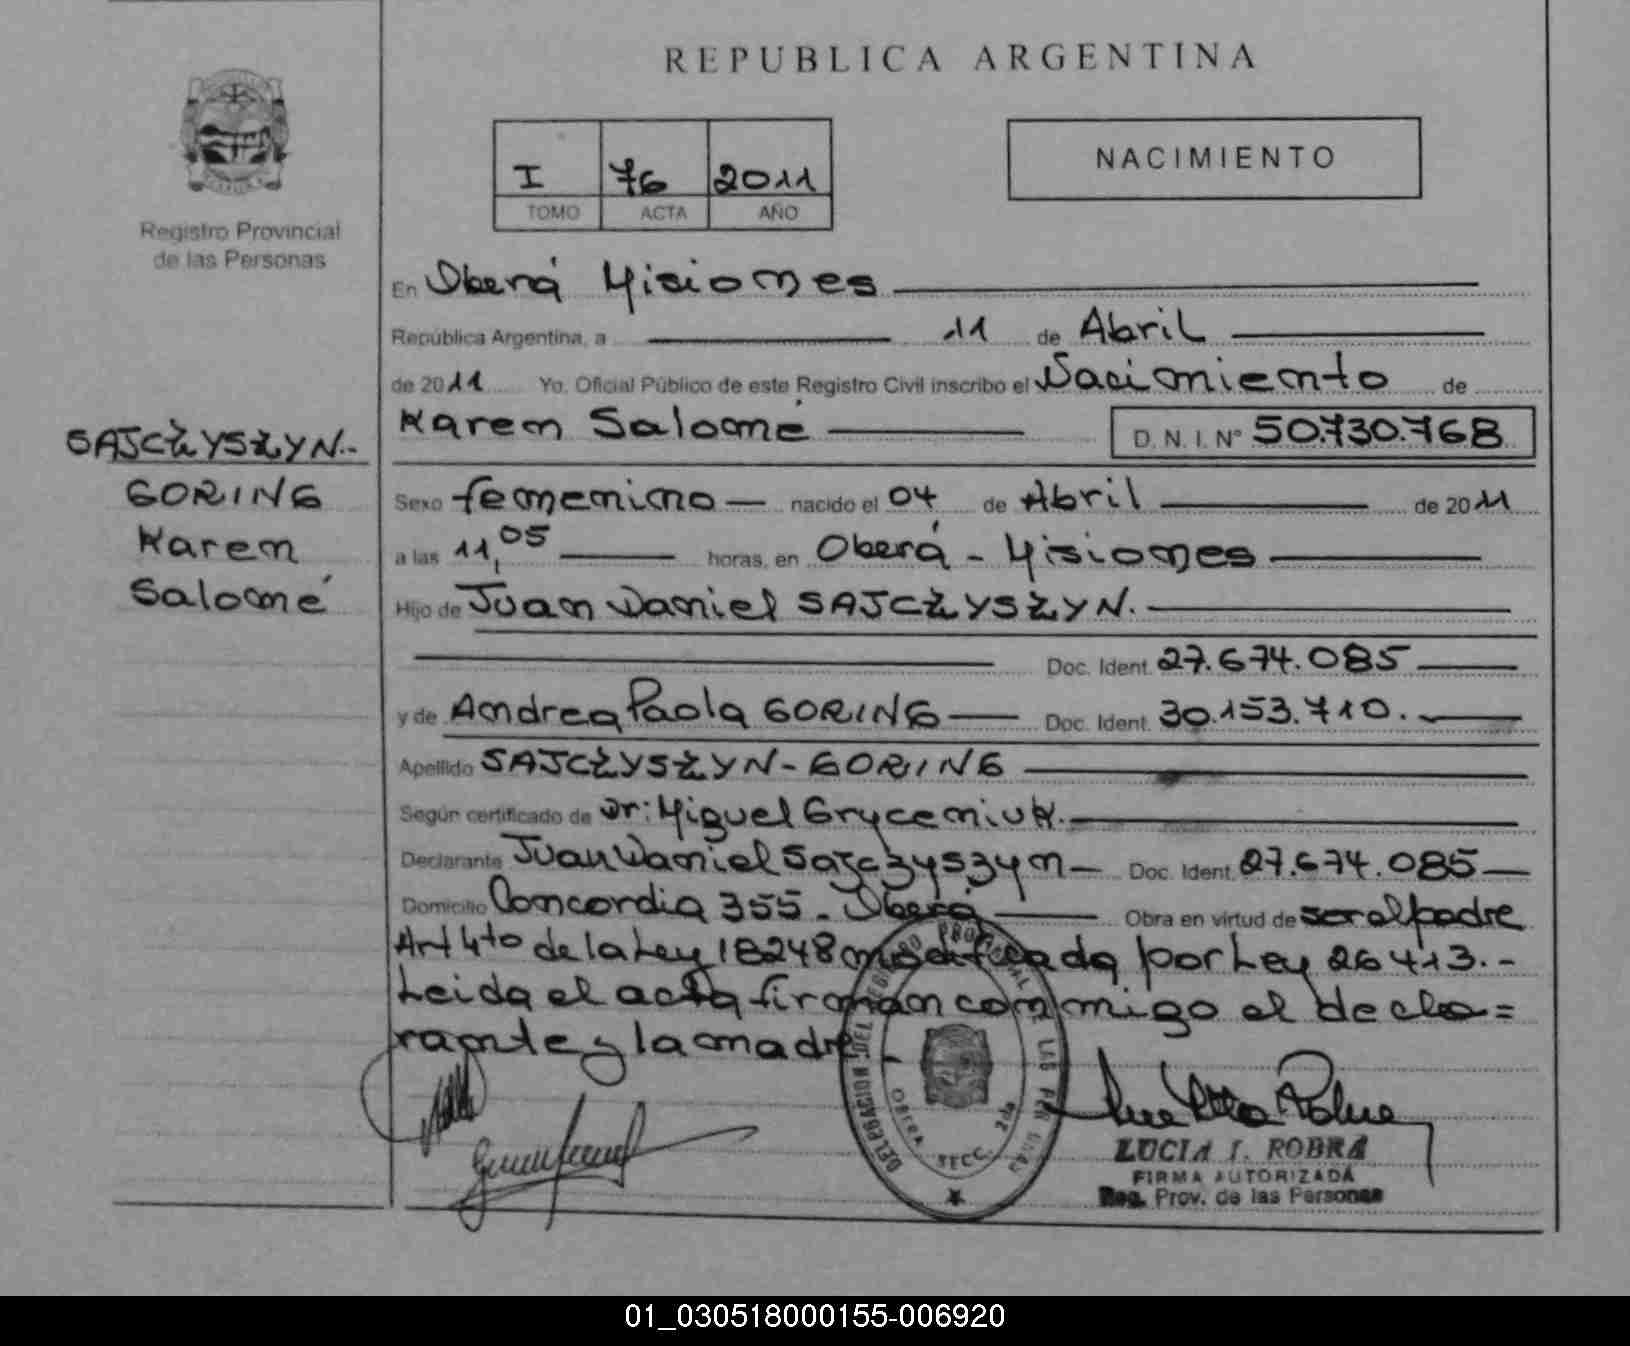 REPUBLICA ARGENTINA
I 76 2011
TOMO ACTA AÑO
NACIMIENTO
Registro Provincial
de las Personas
SAJCZYSZYN.-
GORING
Karen
Salomé
En Oberá Misiones
República Argentina, a 11 de Abril
de 2011 Yo, Oficial Público de este Registro Civil inscribo el Nacimiento de
Karen Salomé D.N.I. N° 50.730.768
Sexo femenino nacido el 04 de Abril de 2011
a las 11,05 horas, en Oberá - Misiones
Hijo de Juan Daniel SAJCZYSZYN.
Doc. Ident. 27.674.085
y de Andrea Paola GORING Doc. Ident. 30.153.710.
Apellido SAJCZYSZYN - GORING
Según certificado de Dr: Miguel Gryceniuk.
Declarante Juan Daniel Sajczyszyn Doc. Ident. 27.674.085
Domicilio Concordia 355 - Oberá Obra en virtud de ser el padre
Art 4to de la Ley 18248 modificada por Ley 26413.-
Leida el acta firman conmigo el decla=
rante y la madre.-
DELEGACION DEL REGISTRO PROVINCIAL DE LAS PERSONAS
OBERA SECC. 2da
LUCIA I. ROBRA
FIRMA AUTORIZADA
Reg. Prov. de las Personas
01_030518000155-006920